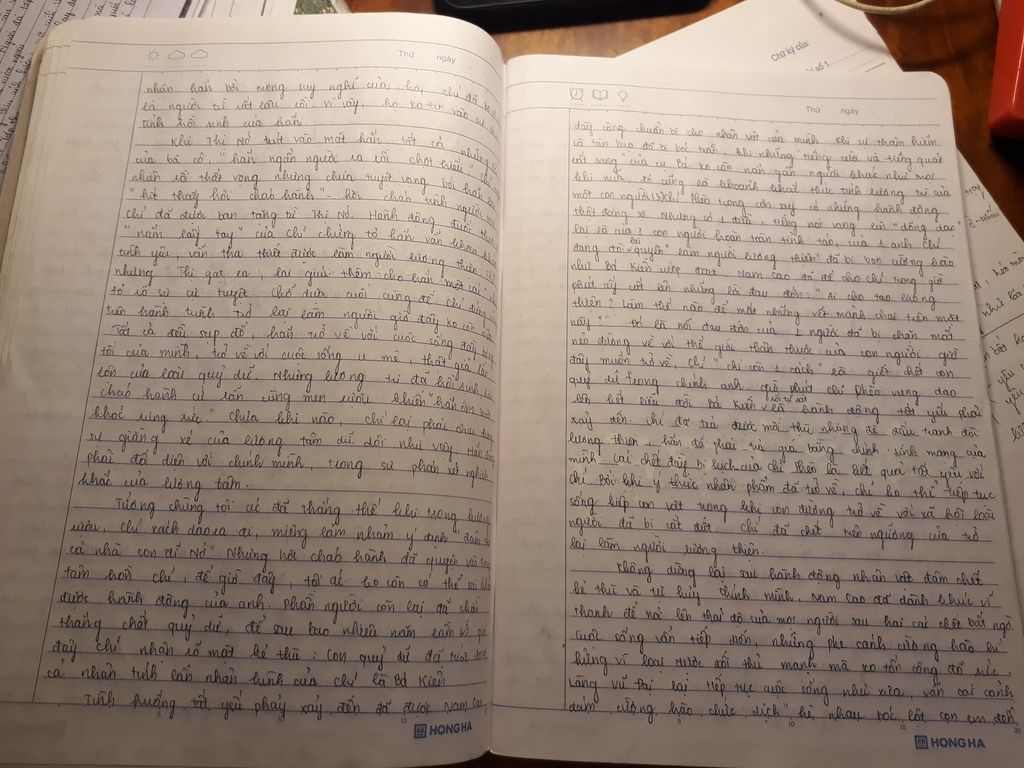 Thứ ngày
nhân hắn bởi trong suy nghĩ của họ, chí đã
là người từ rất lâu rồi. Vì vậy, họ ko tin vào sự
tính hồi sinh của hắn.
Khi Thị Nở trút vào mặt hắn tất cả những
của bà cô, "hắn ngẩn người ra rồi chợt hiểu"
nhiên là thất vọng nhưng chưa tuyệt vọng bởi hắn
"hít thấy hơi cháo hành" - hơi cháo tình người mà
chí đã được ban tặng từ Thị Nở. Hành động đuổi theo
"nắm lấy tay" của Chí chứng tỏ hắn vẫn khao khát
tình yêu, vẫn tha thiết được làm người lương thiện.
nhưng "Thị gạt ra, lại giúi thêm cho hắn một cái"
tỏ rõ sự cự tuyệt. Chỗ dựa cuối cùng để Chí đứng
trên hành trình trở lại làm người giờ đây ko còn
Tất cả đều sụp đổ, hắn trở về với cuộc sống đầy bóng
tối của mình, trở về với cuộc sống u mê, thất
của loài quỷ dữ. Nhưng lương tri đã hồi sinh
cháo hành cứ lấn cùng men rượu khiến "hắn ôm mặt
khóc rưng rức" chưa khi nào, chí lại phải chịu đựng
sự giằng xé của lương tâm dữ dội như vậy. Hắn
phải đối diện với chính mình, trong sự phán xét nghiêm
khắc của lương tâm.
Tưởng chừng tội ác đã thắng thế khi trong hương
rượu, chí xách dao ra đi, miệng lẩm nhẩm ý định
cả nhà con đĩ Nở". Nhưng hơi cháo hành đã quyện vào trong
tâm hồn chí, để giờ đây, tội ác ko còn có thể
được hành động của anh. Phần người còn lại đã
thắng chất quỷ dữ, để sau bao nhiêu năm làm
đây chí nhận rõ mặt kẻ thù: Con quỷ dữ đã tước
cả nhân tính lẫn nhân hình của chí là Bá Kiến
Tình huống tất yếu phải xảy đến đã được Nam Cao,
HONG HA
Chữ ký của:
Thứ ngày
dày công chuẩn bị cho nhân vật của mình. Khi sự tham hiểm
và tàn bạo đã bị bóc trần, khi những tiếng cười và tiếng quát
rất sang" của cụ bá ko còn nắn gân người khác như mọi
khi nữa, đó cũng là khoảnh khắc thức tỉnh lương tri của
một con người. Chí Phèo trong cơn say có những hành động
thật đáng sợ. Nhưng có 1 điều, tiếng nói vang lên "dõng dạc"
lại là của 1 con người hoàn toàn tỉnh táo, của 1 anh Chí
đang đòi lại quyền "làm người lương thiện" đã bị bọn cường hào
như Bá Kiến cướp đoạt. Nam Cao đã để cho chí trong giờ
phút ấy cất lên những lời đau đớn: "Ai cho tao lương
thiện? Làm thế nào để mất những vết mảnh chai trên mặt
này?" Đó là nỗi đau đớn của 1 người đã bị chặn mất
nẻo đường về với thế giới thân thuộc của con người. giờ
đây muốn trở về, chí "chỉ còn 1 cách" là giết chết con
quỷ dữ trong chính anh. giờ phút Chí Phèo vung dao
lên kết liễu đời Bá Kiến rồi tự sát là hành động tất yếu phải
xảy đến. Chí đã trả được mối thù nhưng để đấu tranh đòi
lương thiện, hắn đã phải trả giá bằng chính sinh mạng của
mình. Cái chết đầy bi kịch của chí Phèo là kết quả tất yếu với
chí. Bởi khi ý thức nhân phẩm đã trở về, chí ko thể tiếp tục
sống kiếp con vật trong khi con đường trở về với xã hội loài
người đã bị cắt đứt. Chí đã chết trên ngưỡng cửa trở
lại làm người lương thiện.
Không dừng lại sau hành động nhân vật đâm chết
kẻ thù và tự hủy chính mình, Nam Cao đã dành khúc vĩ
thanh để nói lên thái độ của mọi người sau hai cái chết bất ngờ
Cuộc sống vẫn tiếp diễn, những phe cánh cường hào hí
hửng vì loại được đối thủ mạnh mà ko tốn công đổ sức
Làng Vũ Đại lại tiếp tục cuộc sống như xưa, vẫn cái cảnh
đám cường hào chức dịch "bè nhau bóc lột con em đến
HONG HA